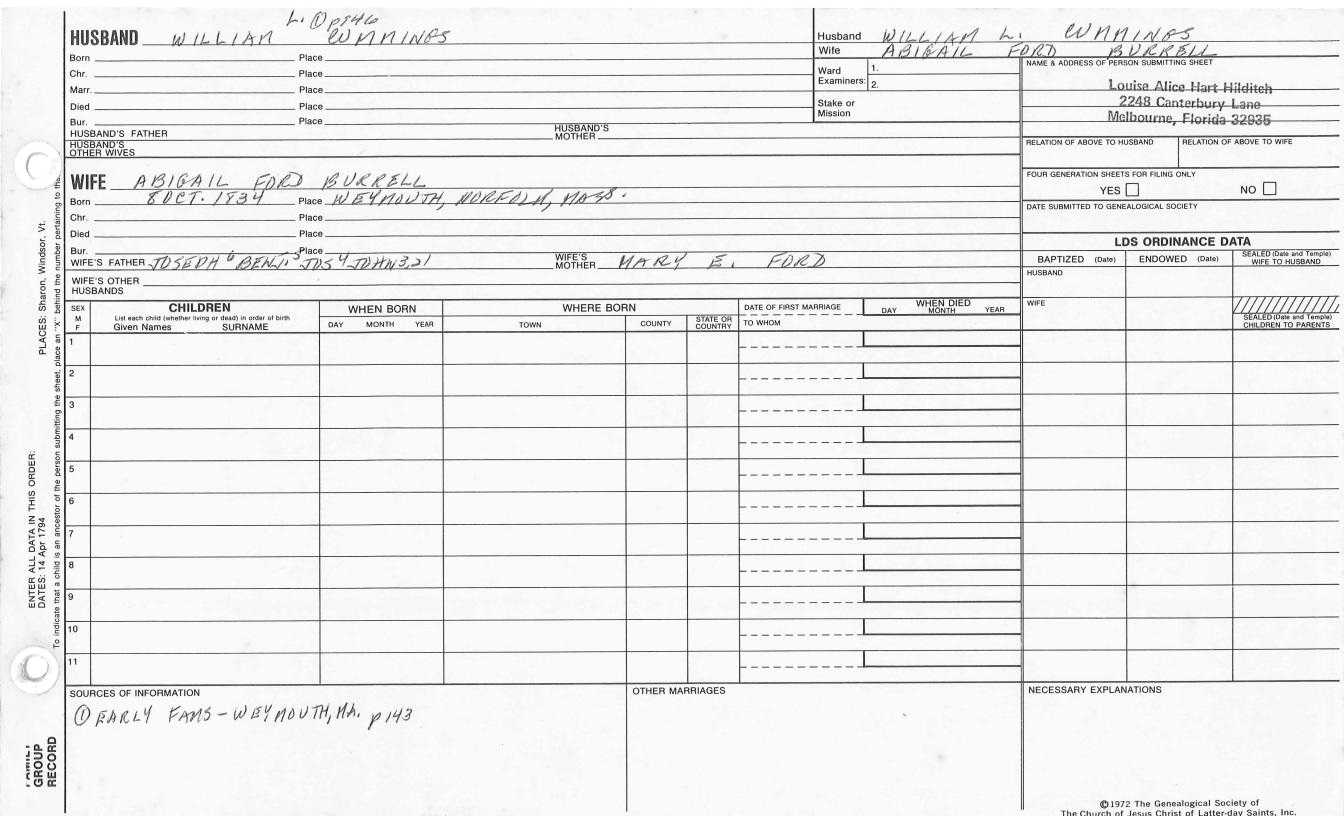 L. ① p 146
HUSBAND WILLIAM CUMMINGS
Born Place
Chr. Place
Marr. Place
Died Place
Bur. Place
HUSBAND'S FATHER HUSBAND'S MOTHER
HUSBAND'S OTHER WIVES
Husband WILLIAM L. CUMMINGS
Wife ABIGAIL FORD BURRELL
Ward Examiners: 1.
2.
Stake or Mission
NAME & ADDRESS OF PERSON SUBMITTING SHEET
Louise Alice Hart Hilditch
2248 Canterbury Lane
Melbourne, Florida 32935
RELATION OF ABOVE TO HUSBAND RELATION OF ABOVE TO WIFE
FOUR GENERATION SHEETS FOR FILING ONLY
YES NO
DATE SUBMITTED TO GENEALOGICAL SOCIETY
WIFE ABIGAIL FORD BURRELL
Born 8 OCT. 1834 Place WEYMOUTH, NORFOLK, MASS.
Chr. Place
Died Place
Bur. Place
WIFE'S FATHER JOSEPH⁶ BENJ.⁵ JOS⁴ JOHN3,2,1 WIFE'S MOTHER MARY E. FORD
WIFE'S OTHER HUSBANDS
LDS ORDINANCE DATA
BAPTIZED (Date) ENDOWED (Date) SEALED (Date and Temple) WIFE TO HUSBAND
HUSBAND
WIFE
SEALED (Date and Temple) CHILDREN TO PARENTS
SEX M F
CHILDREN
List each child (whether living or dead) in order of birth
Given Names SURNAME
WHEN BORN
DAY MONTH YEAR
WHERE BORN
TOWN COUNTY STATE OR COUNTRY
DATE OF FIRST MARRIAGE
TO WHOM
WHEN DIED
DAY MONTH YEAR
1
2
3
4
5
6
7
8
9
10
11
SOURCES OF INFORMATION
① EARLY FAMS - WEYMOUTH, MA. p 143
OTHER MARRIAGES
NECESSARY EXPLANATIONS
©1972 The Genealogical Society of
The Church of Jesus Christ of Latter-day Saints, Inc.
PLACES: Sharon, Windsor, Vt.
ENTER ALL DATA IN THIS ORDER:
DATES: 14 Apr 1794
To indicate that a child is an ancestor of the person submitting the sheet, place an "X" behind the number pertaining to
FAMILY GROUP RECORD